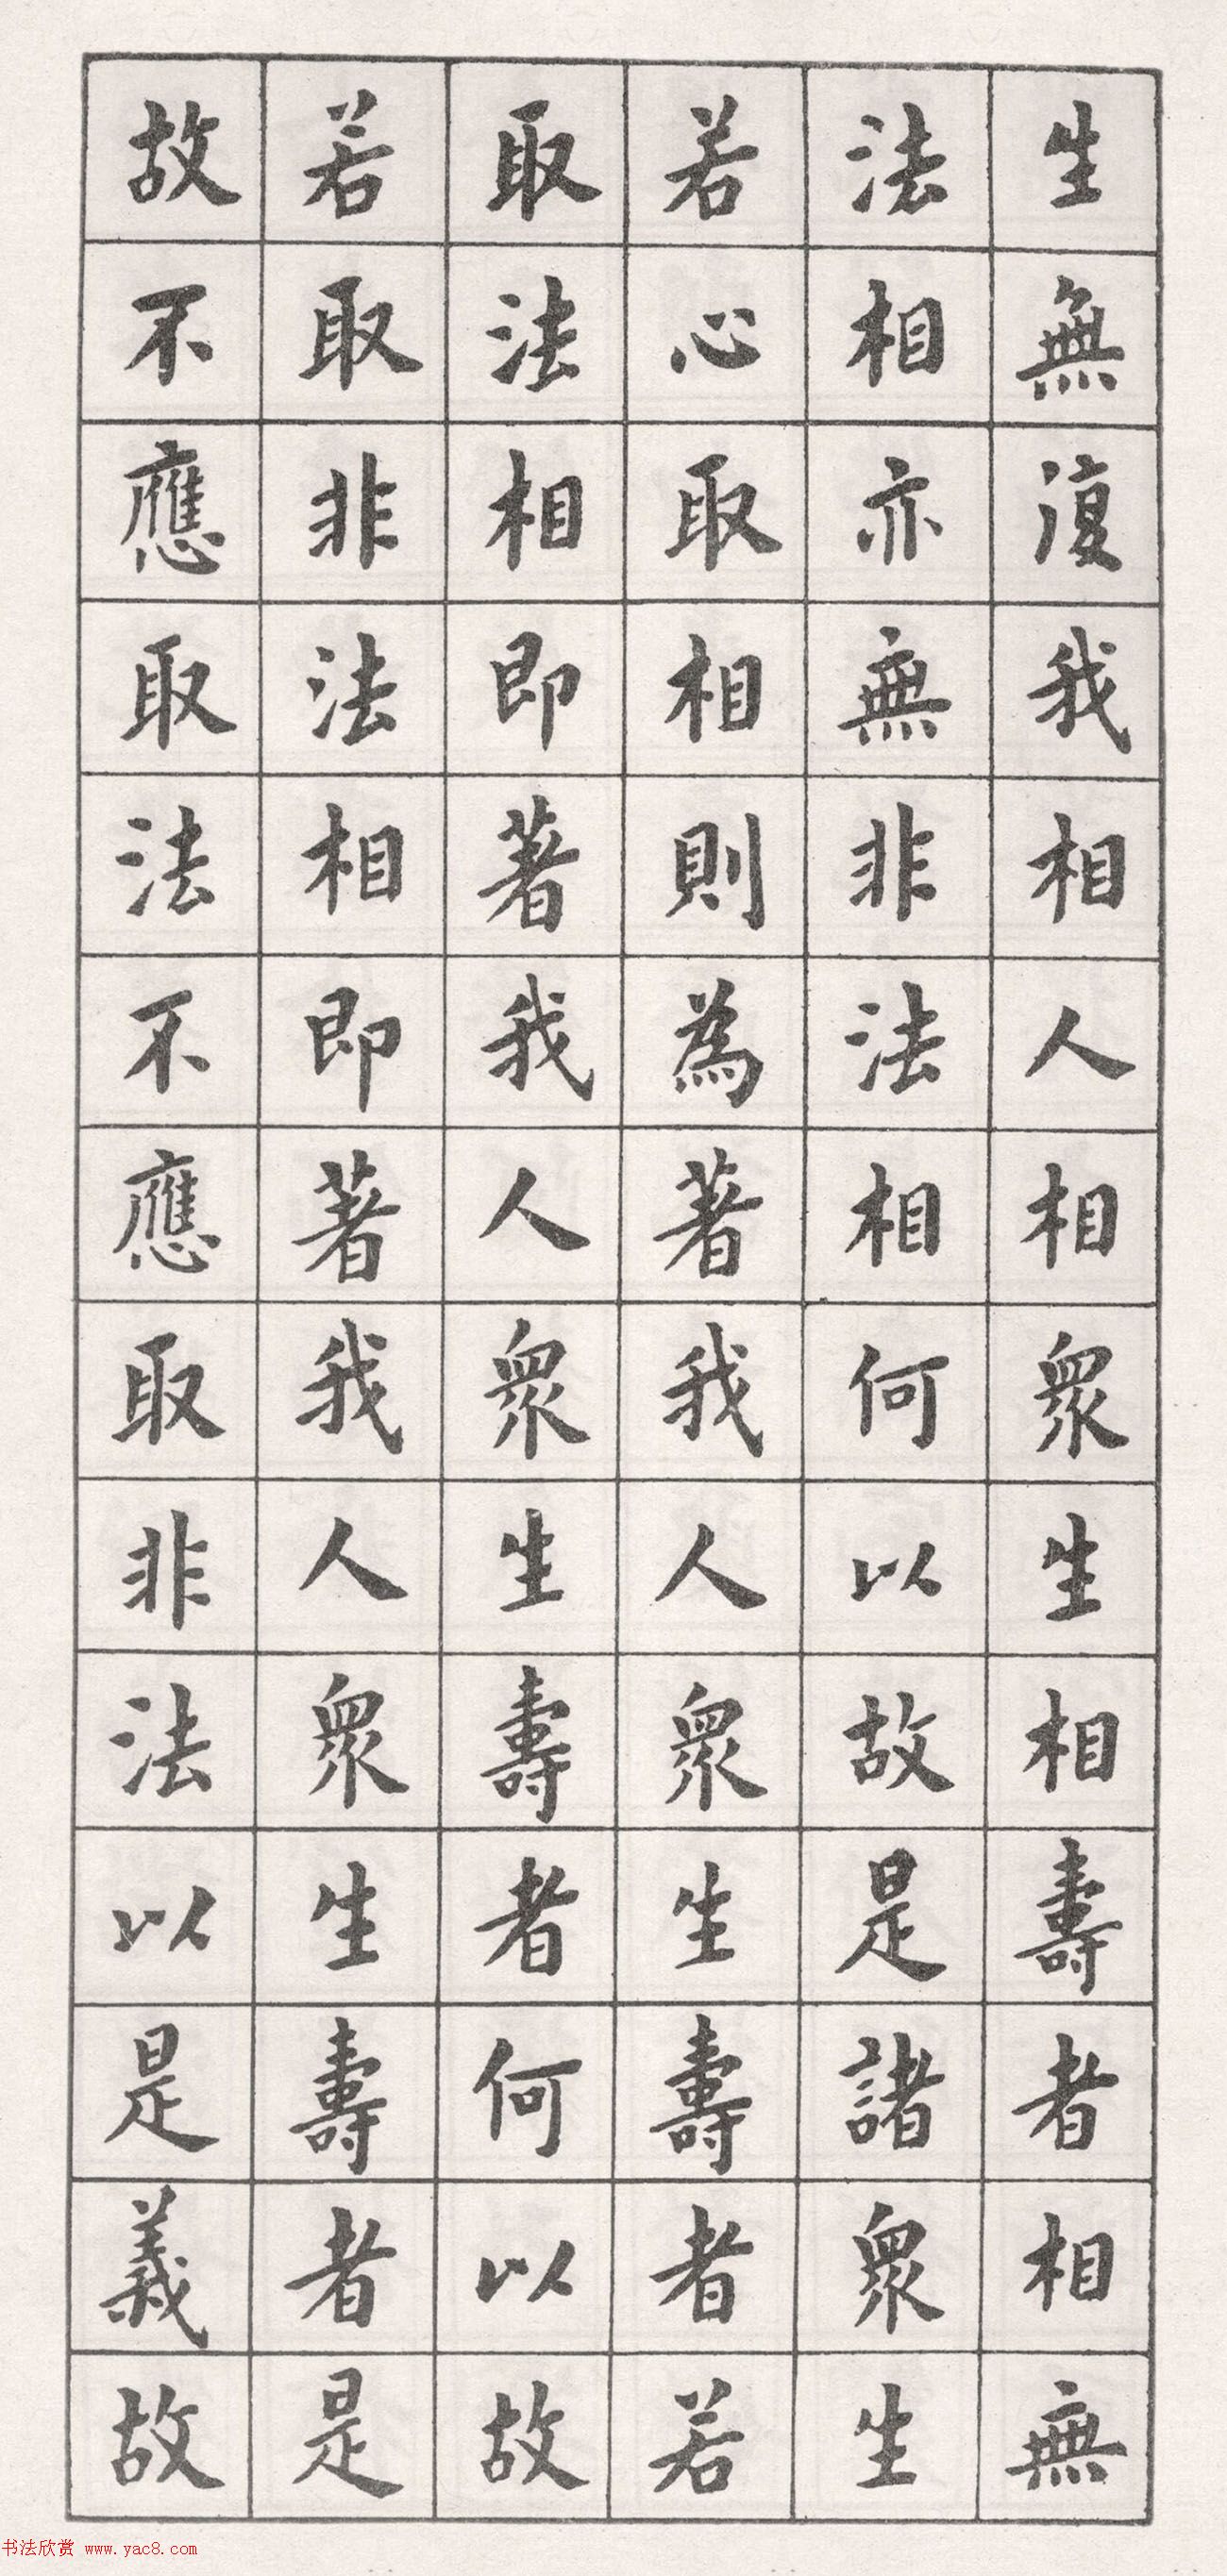 生無復我相人相衆生相壽者相無
法相亦無非法相何以故是諸衆生
若心取相則為著我人衆生壽者若
取法相即著我人衆生壽者何以故
若取非法相即著我人衆生壽者是
故不應取法不應取非法以是義故
书法欣赏 www.yac8.com